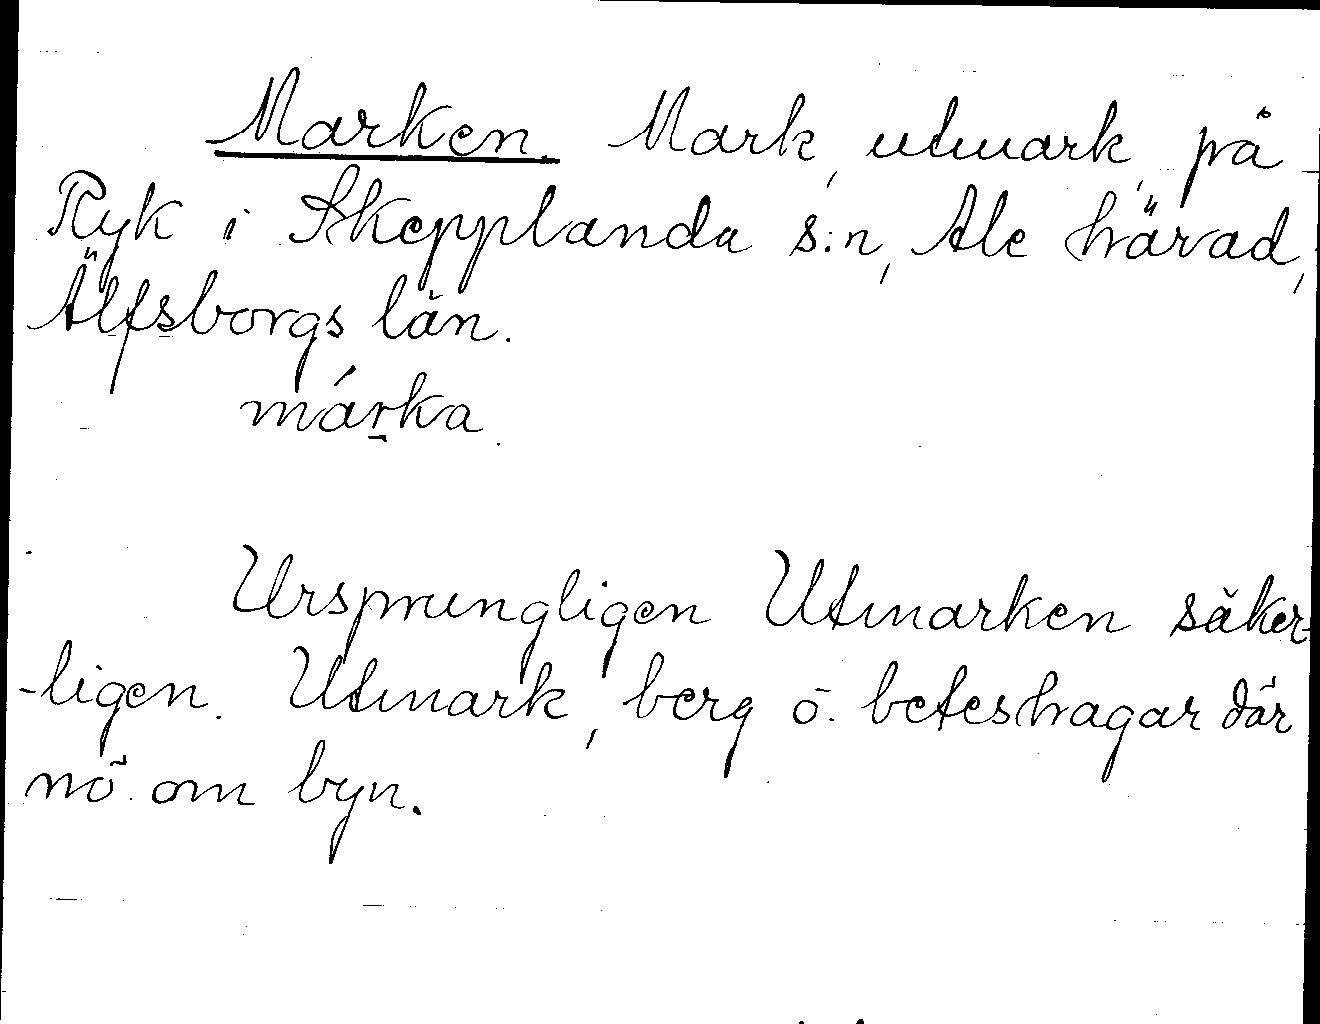 Marken. Mark, utmark, på
Ryk i Skepplanda s:n, Ale härad,
Älfsborgs län.
márka.
Ursprungligen Utmarken säker-
-ligen. Utmark, berg o. beteshagar där
nö. om byn.